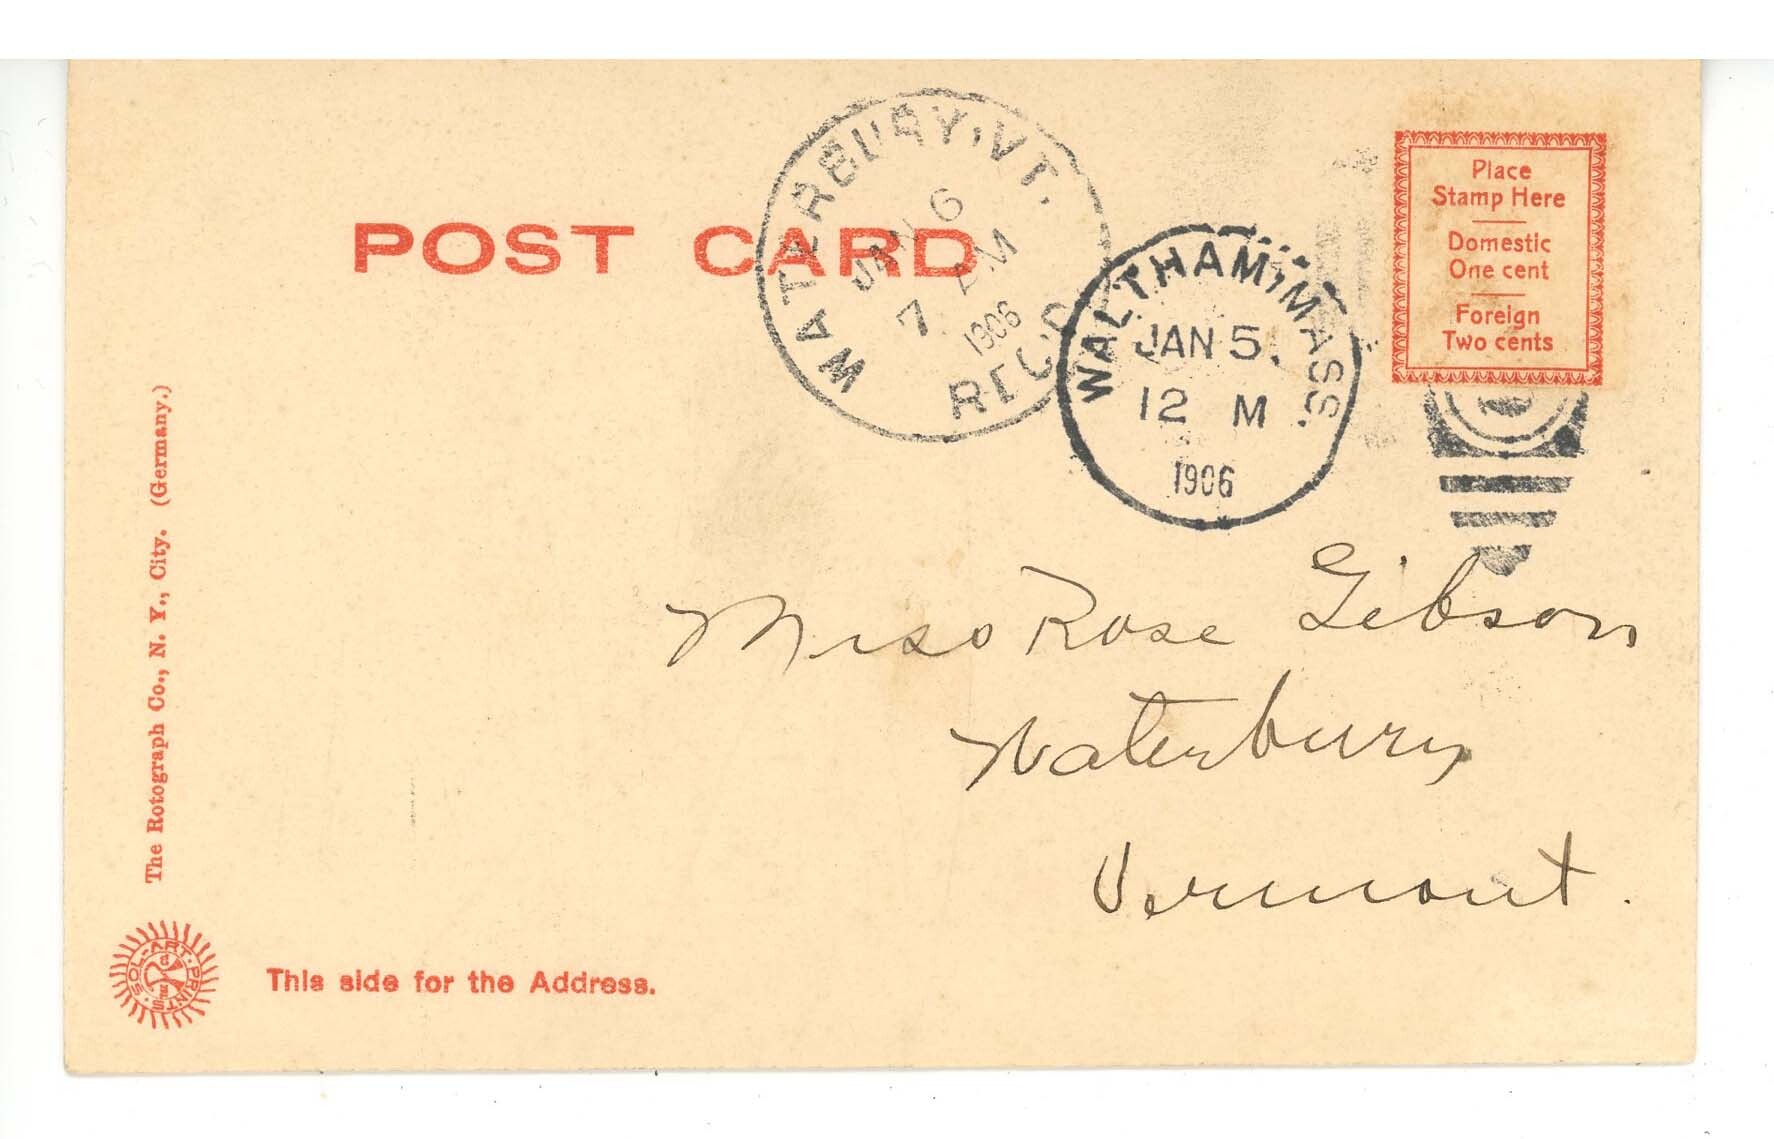 POST CARD
WATERBURY, VT.
JAN 6
7 AM
1906
REC'D
WALTHAM, MASS.
JAN 5.
12 M
1906
Place
Stamp Here
Domestic
One cent
Foreign
Two cents
Miss Rose Gibson
Waterbury
Vermont.
The Rotograph Co., N. Y., City. (Germany.)
SOL-ART PRINTS
This side for the Address.